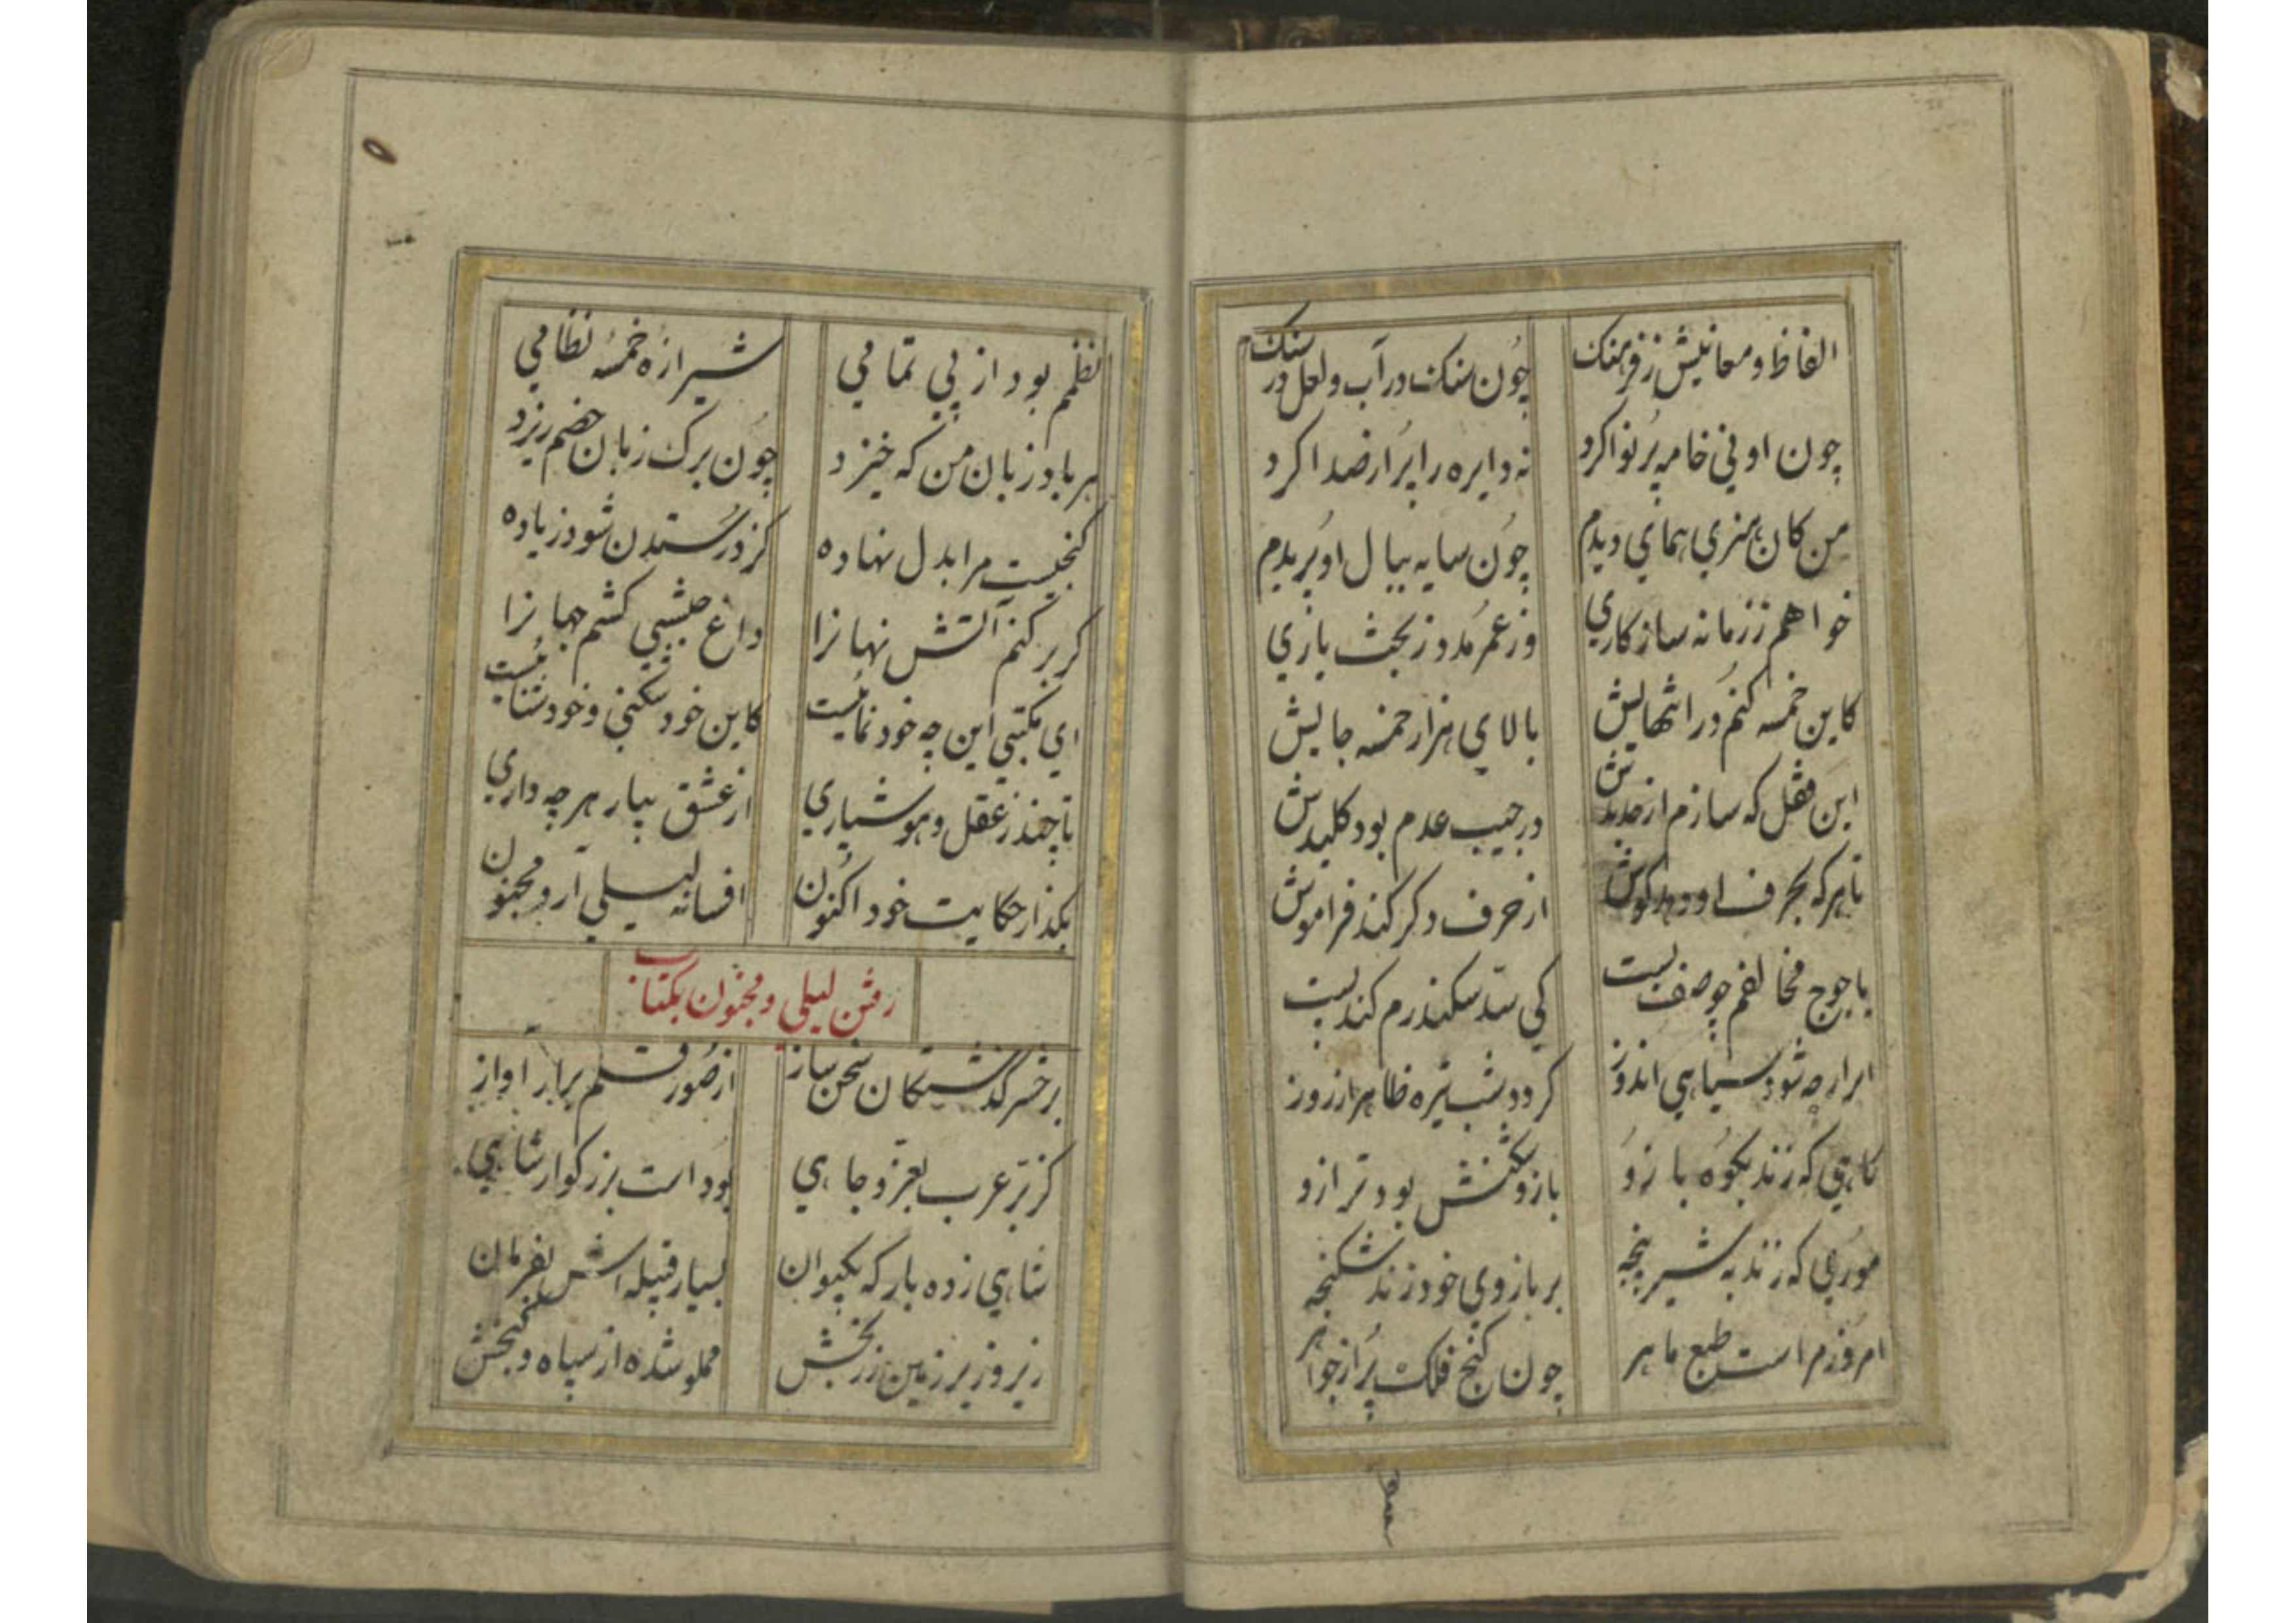 الفاظ و معانیش ز فرهنک چون سنک در آب و لعل در سنک
چون او نی خامه پر نوا کرد نه دایره را پر از صدا کرد
من کان هنری همای دیدم چون سایه ببال او پریدم
خواهم ز زمانه سازکاری وز عمر مدد ز بخت یاری
کاین خمسه کنم در انتهایش بالای هزار خمسه جایش
این قفل که سازم از حدیدش در جیب عدم بود کلیدش
تا هرکه بحرف او دهد کوش از حرف دکر کند فراموش
یاجوج مخالفم چو صف بست کی سد سکندرم کند پست
ابر ارچه شود سیاهی اندوز کردد شب تیره ظاهر از روز
کاهی که زند بکوه بازو بازو شکنش بود ترازو
موری که زند به شیر پنجه بر بازوی خود زند شکنجه
امروزم است طبع ماهر چون کنج فلک پر از جواهر
نظمم بود از پی تمامی شیرازه خمسه نظامی
هر باد زبان من که خیزد چون برک زبان خصم ریزد
کنجیست مرا بدل نهاده کز در ستدن شود زیاده
کر بر کنم آتش نهانرا داغ حبشی کشم جهانرا
ای مکتبی این چه خود نمائیست کاین خود شکنی و خود ستائیست
تا چند ز عقل و هوشیاری از عشق بیار هرچه داری
بکذار حکایت خود اکنون افسانه لیلی آر و مجنون
رفتن لیلی و مجنون بمکتاب
برخسر کذشتکان سخن ساز از صور قلم برآر آواز
کز بر عرب بعز و جاهی بود است بزرکوار شاهی
شاهی زده بارکه بکیوان بسیار قبیله اش بفرمان
زیر و زبر زمین زربخش مملو شده از سپاه و کنجش